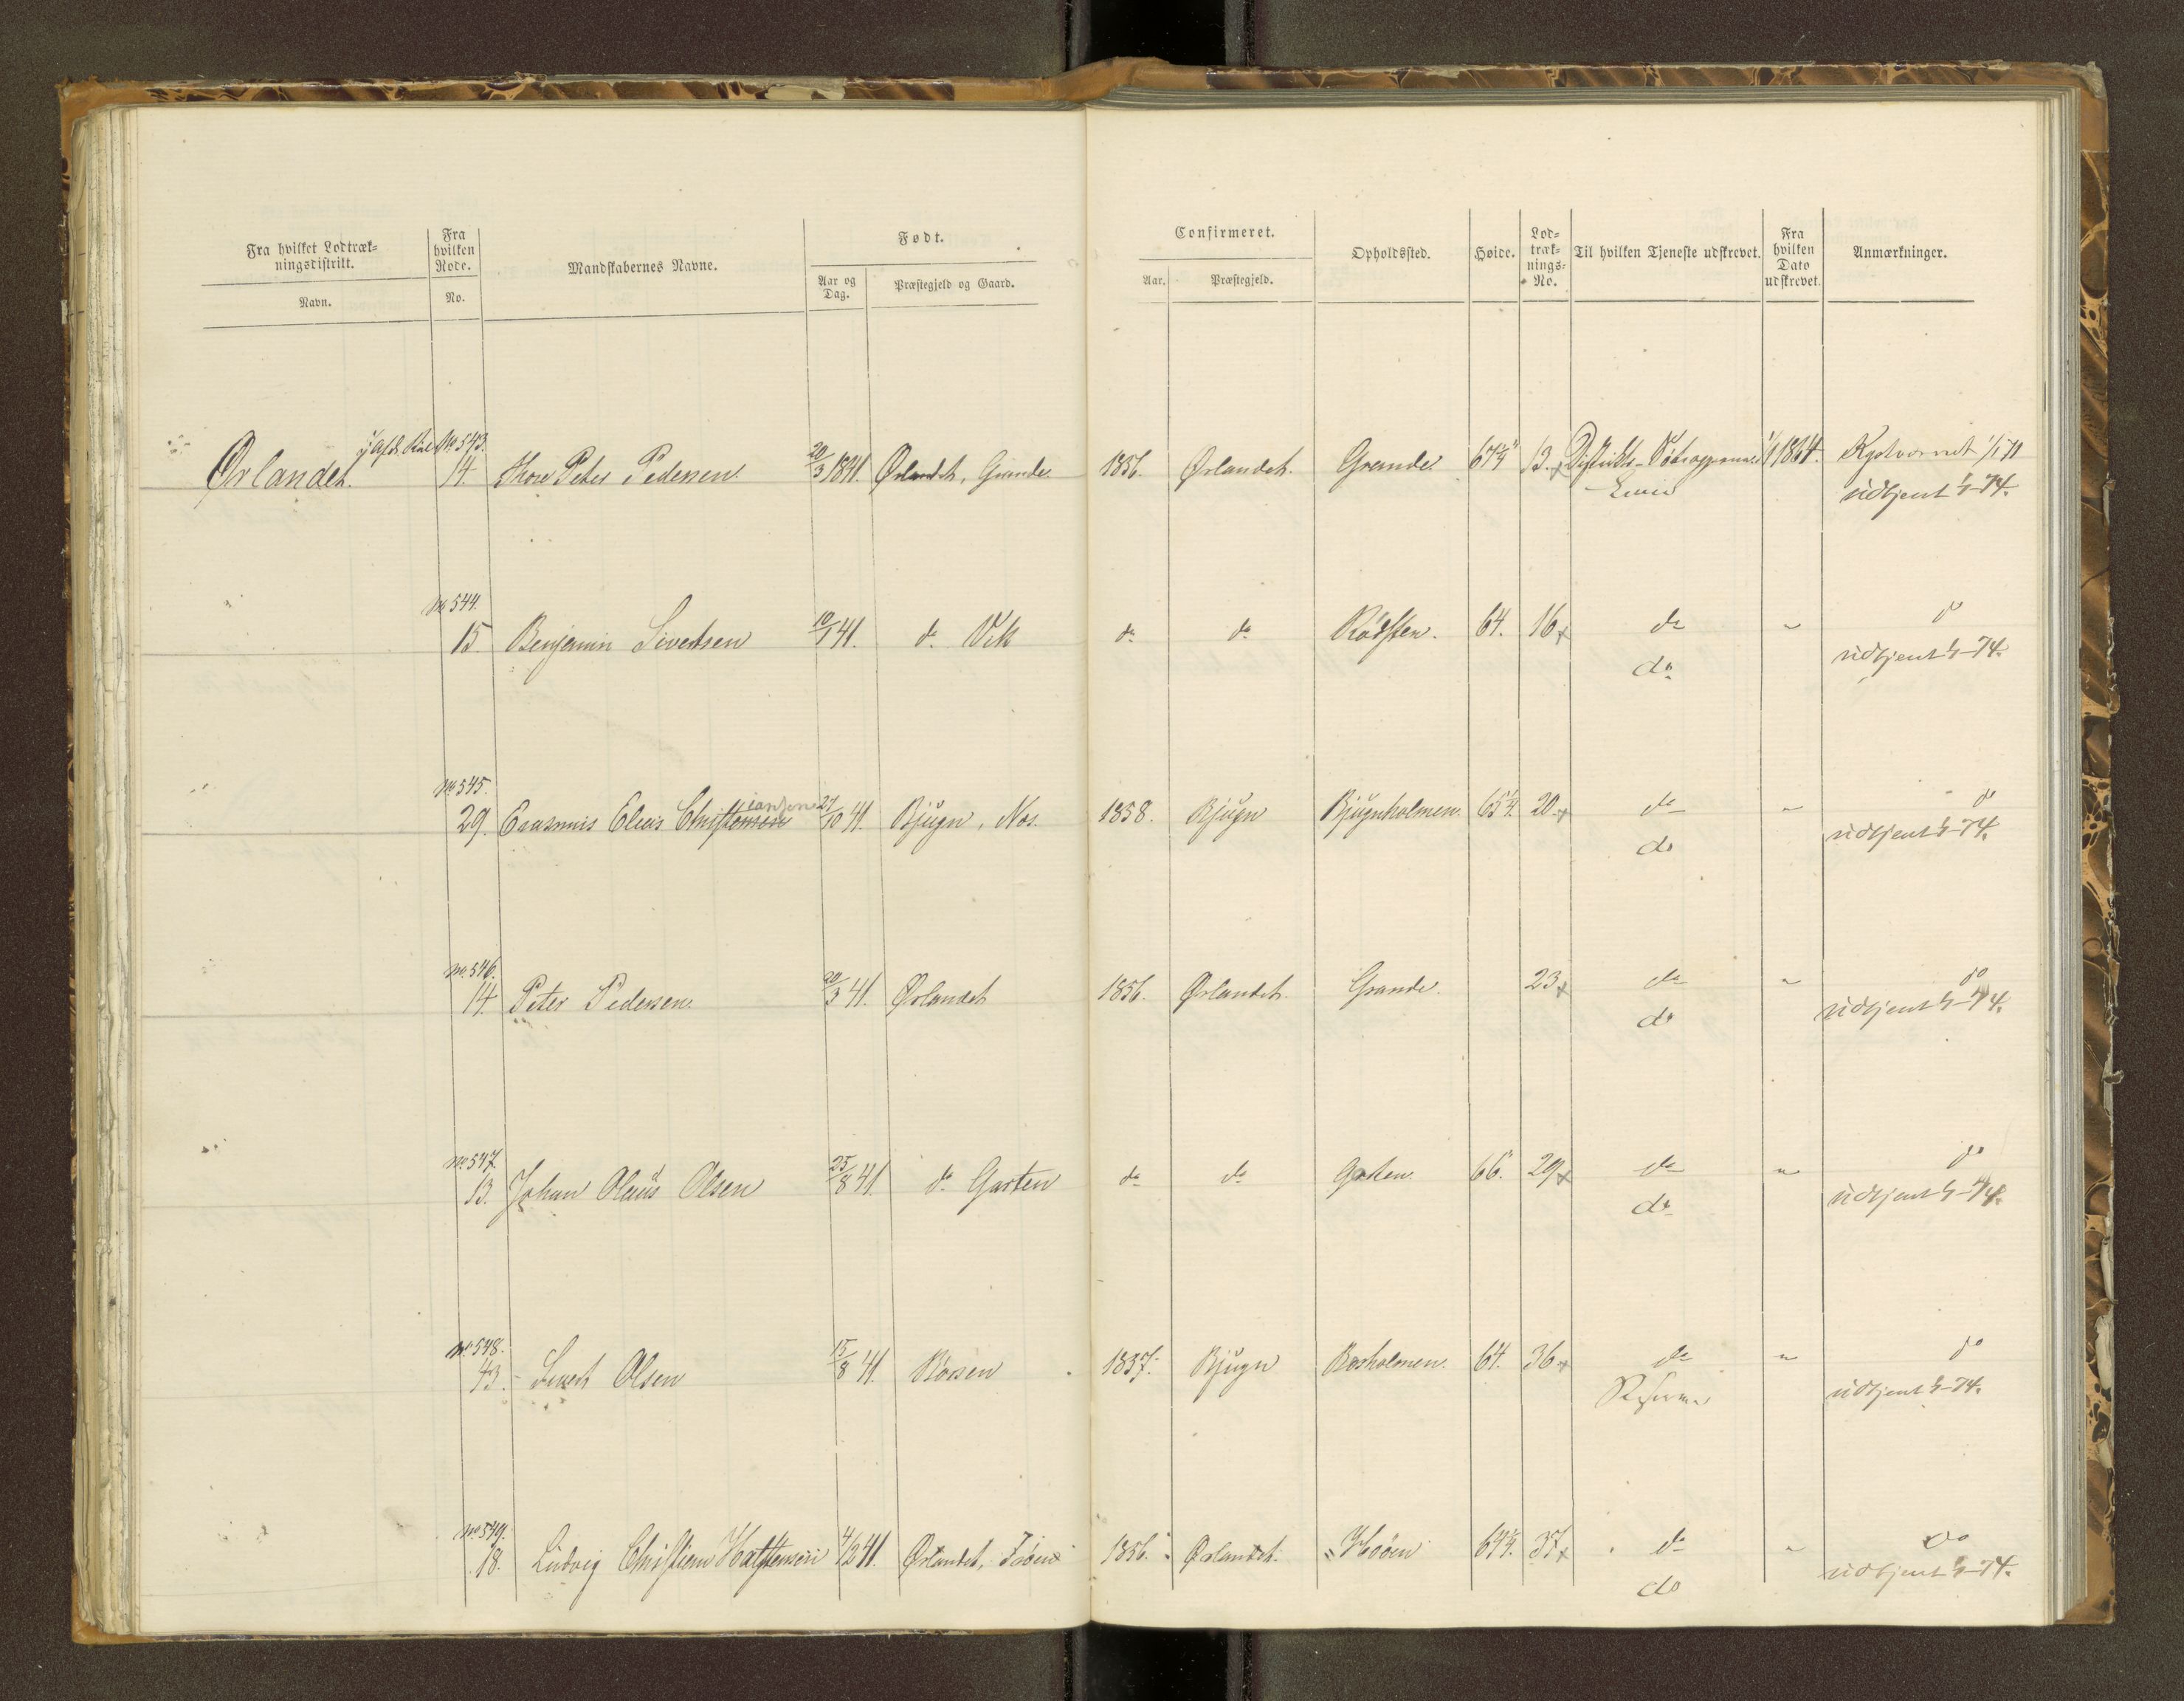 Fra hvilket Lodtræk-
ningsdistrikt.
Navn.
Fra
hvilken
Rode.
No.
Mandskabernes Navne.
Født.
Aar og
Dag.
Præstegjeld og Gaard.
Confirmeret.
Aar.
Præstegjeld.
Opholdssted.
Høide.
Lod-
træk-
nings-
No.
Til hvilken Tjeneste udskrevet.
Fra
hvilken
Dato
udskrevet.
Anmærkninger.
No 543.
Ørlandet. 14. Thore Peter Pedersen 20/3 1841. Ørlandet, Grande 1856. Ørlandet. Grande 67¼" 13. Distrikts- 1/1 1864. Kystvernet 1/1 71
Linie udtjent 1/1-74.
No 544.
15. Benjamin Sivertsen 10/1 41. do Vik do do Rødsten. 64. 16 do " do
do udtjent 1/1-74.
No 545. iansen
29. Erasmus Elias Christensen 27/10 41. Bjugn, Nos. 1858. Bjugn Bjugnholmen. 65¼. 20 do " do
do udtjent 1/1-74.
No 546.
14. Peter Pedersen. 20/3 41. Ørlandet 1856. Ørlandet. Grande. 23 do " do
do udtjent 1/1-74.
No 547.
13. Johan Olaus Olsen 25/8 41. do Garten do do Garten 66". 29 do " do
do udtjent 1/1-74.
No 548.
43. Sivert Olsen 15/8 41. 1857. Bjugn 64. 36 do " do
Reserve udtjent 1/1-74.
No 549.
18. Ludvig Christian 4/2 41. Ørlandet, 1856. Ørlandet. 37 do " do
do udtjent 1/1-74.